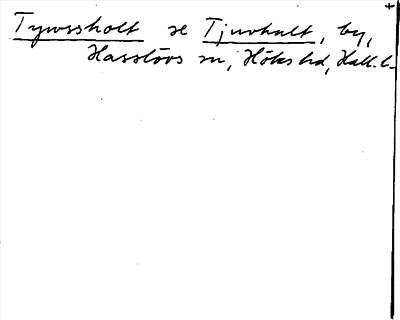 Tywssholt se Tjuvhult, by,
Hasslövs sn, Höks hd, Hall. l.